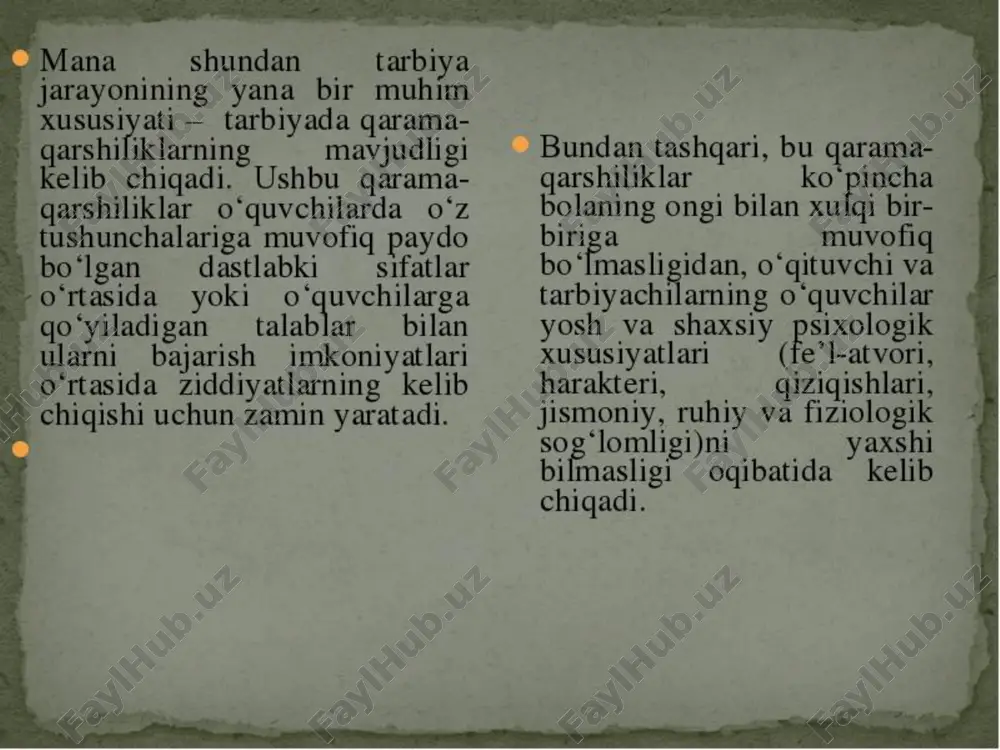 Mana shundan tarbiya
jarayonining yana bir muhim
xususiyati – tarbiyada qarama-
qarshiliklarning mavjudligi
kelib chiqadi. Ushbu qarama-
qarshiliklar o‘quvchilarda o‘z
tushunchalariga muvofiq paydo
bo‘lgan dastlabki sifatlar
o‘rtasida yoki o‘quvchilarga
qo‘yiladigan talablar bilan
ularni bajarish imkoniyatlari
o‘rtasida ziddiyatlarning kelib
chiqishi uchun zamin yaratadi.
Bundan tashqari, bu qarama-
qarshiliklar ko‘pincha
bolaning ongi bilan xulqi bir-
biriga muvofiq
bo‘lmasligidan, o‘qituvchi va
tarbiyachilarning o‘quvchilar
yosh va shaxsiy psixologik
xususiyatlari (fe’l-atvori,
harakteri, qiziqishlari,
jismoniy, ruhiy va fiziologik
sog‘lomligi)ni yaxshi
bilmasligi oqibatida kelib
chiqadi.
FaylHub.uz
FaylHub.uz
FaylHub.uz
FaylHub.uz
FaylHub.uz
FaylHub.uz
FaylHub.uz
FaylHub.uz
FaylHub.uz
FaylHub.uz
FaylHub.uz
FaylHub.uz